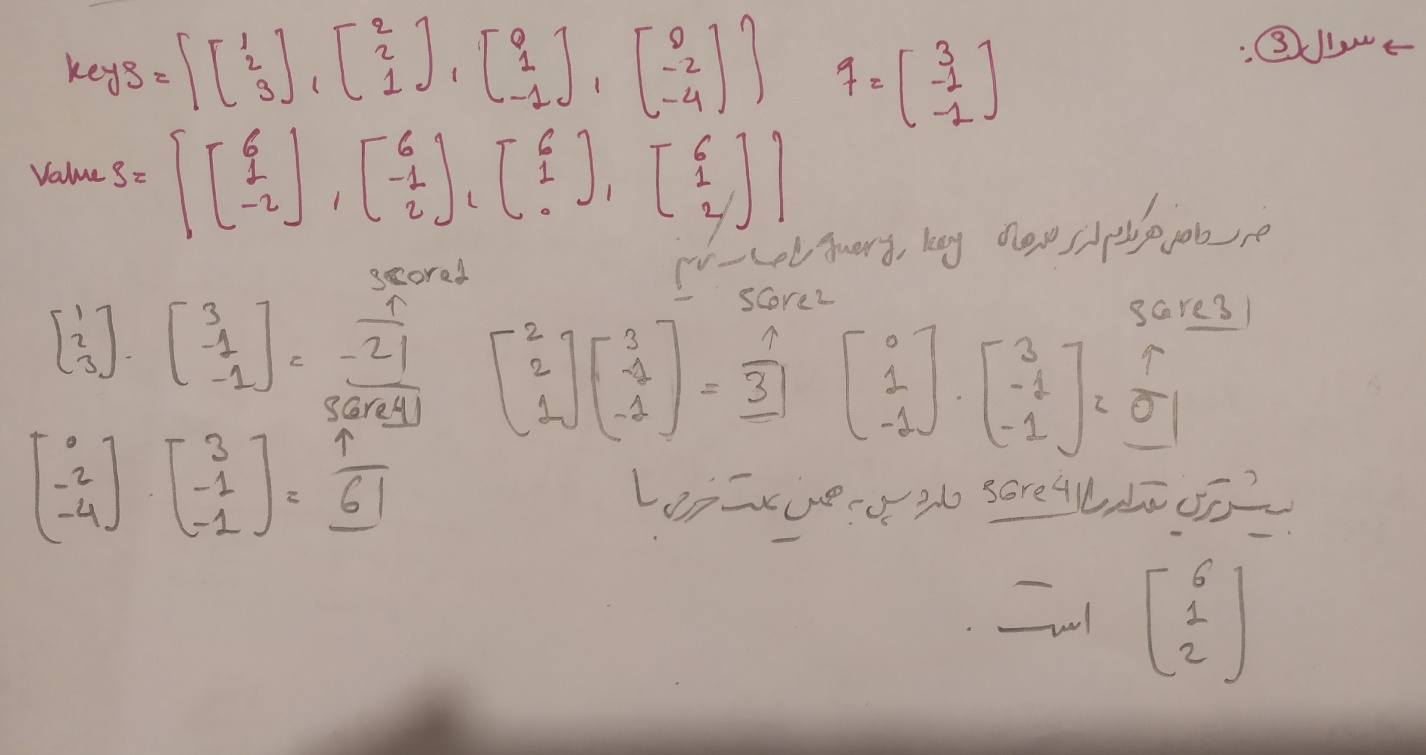 ← سوال 3:
keys = [[1 2 3], [2 2 1], [0 1 -1], [0 -2 -4]] q = [3 -1 -1]
Values = [[6 1 -2], [6 -1 2], [6 1 0], [6 1 2]]
ضرب داخلی هرکدام از key و query را حساب میکنیم
[1 2 3] . [3 -1 -1] = -2 → score1
[2 2 1] [3 -1 -1] = 3 → score2
[0 1 -1] . [3 -1 -1] = 0 → score3
[0 -2 -4] . [3 -1 -1] = 6 → score4
بیشترین مقدار را score4 دارد پس به همین علت خروجی ما
[6 1 2] است.